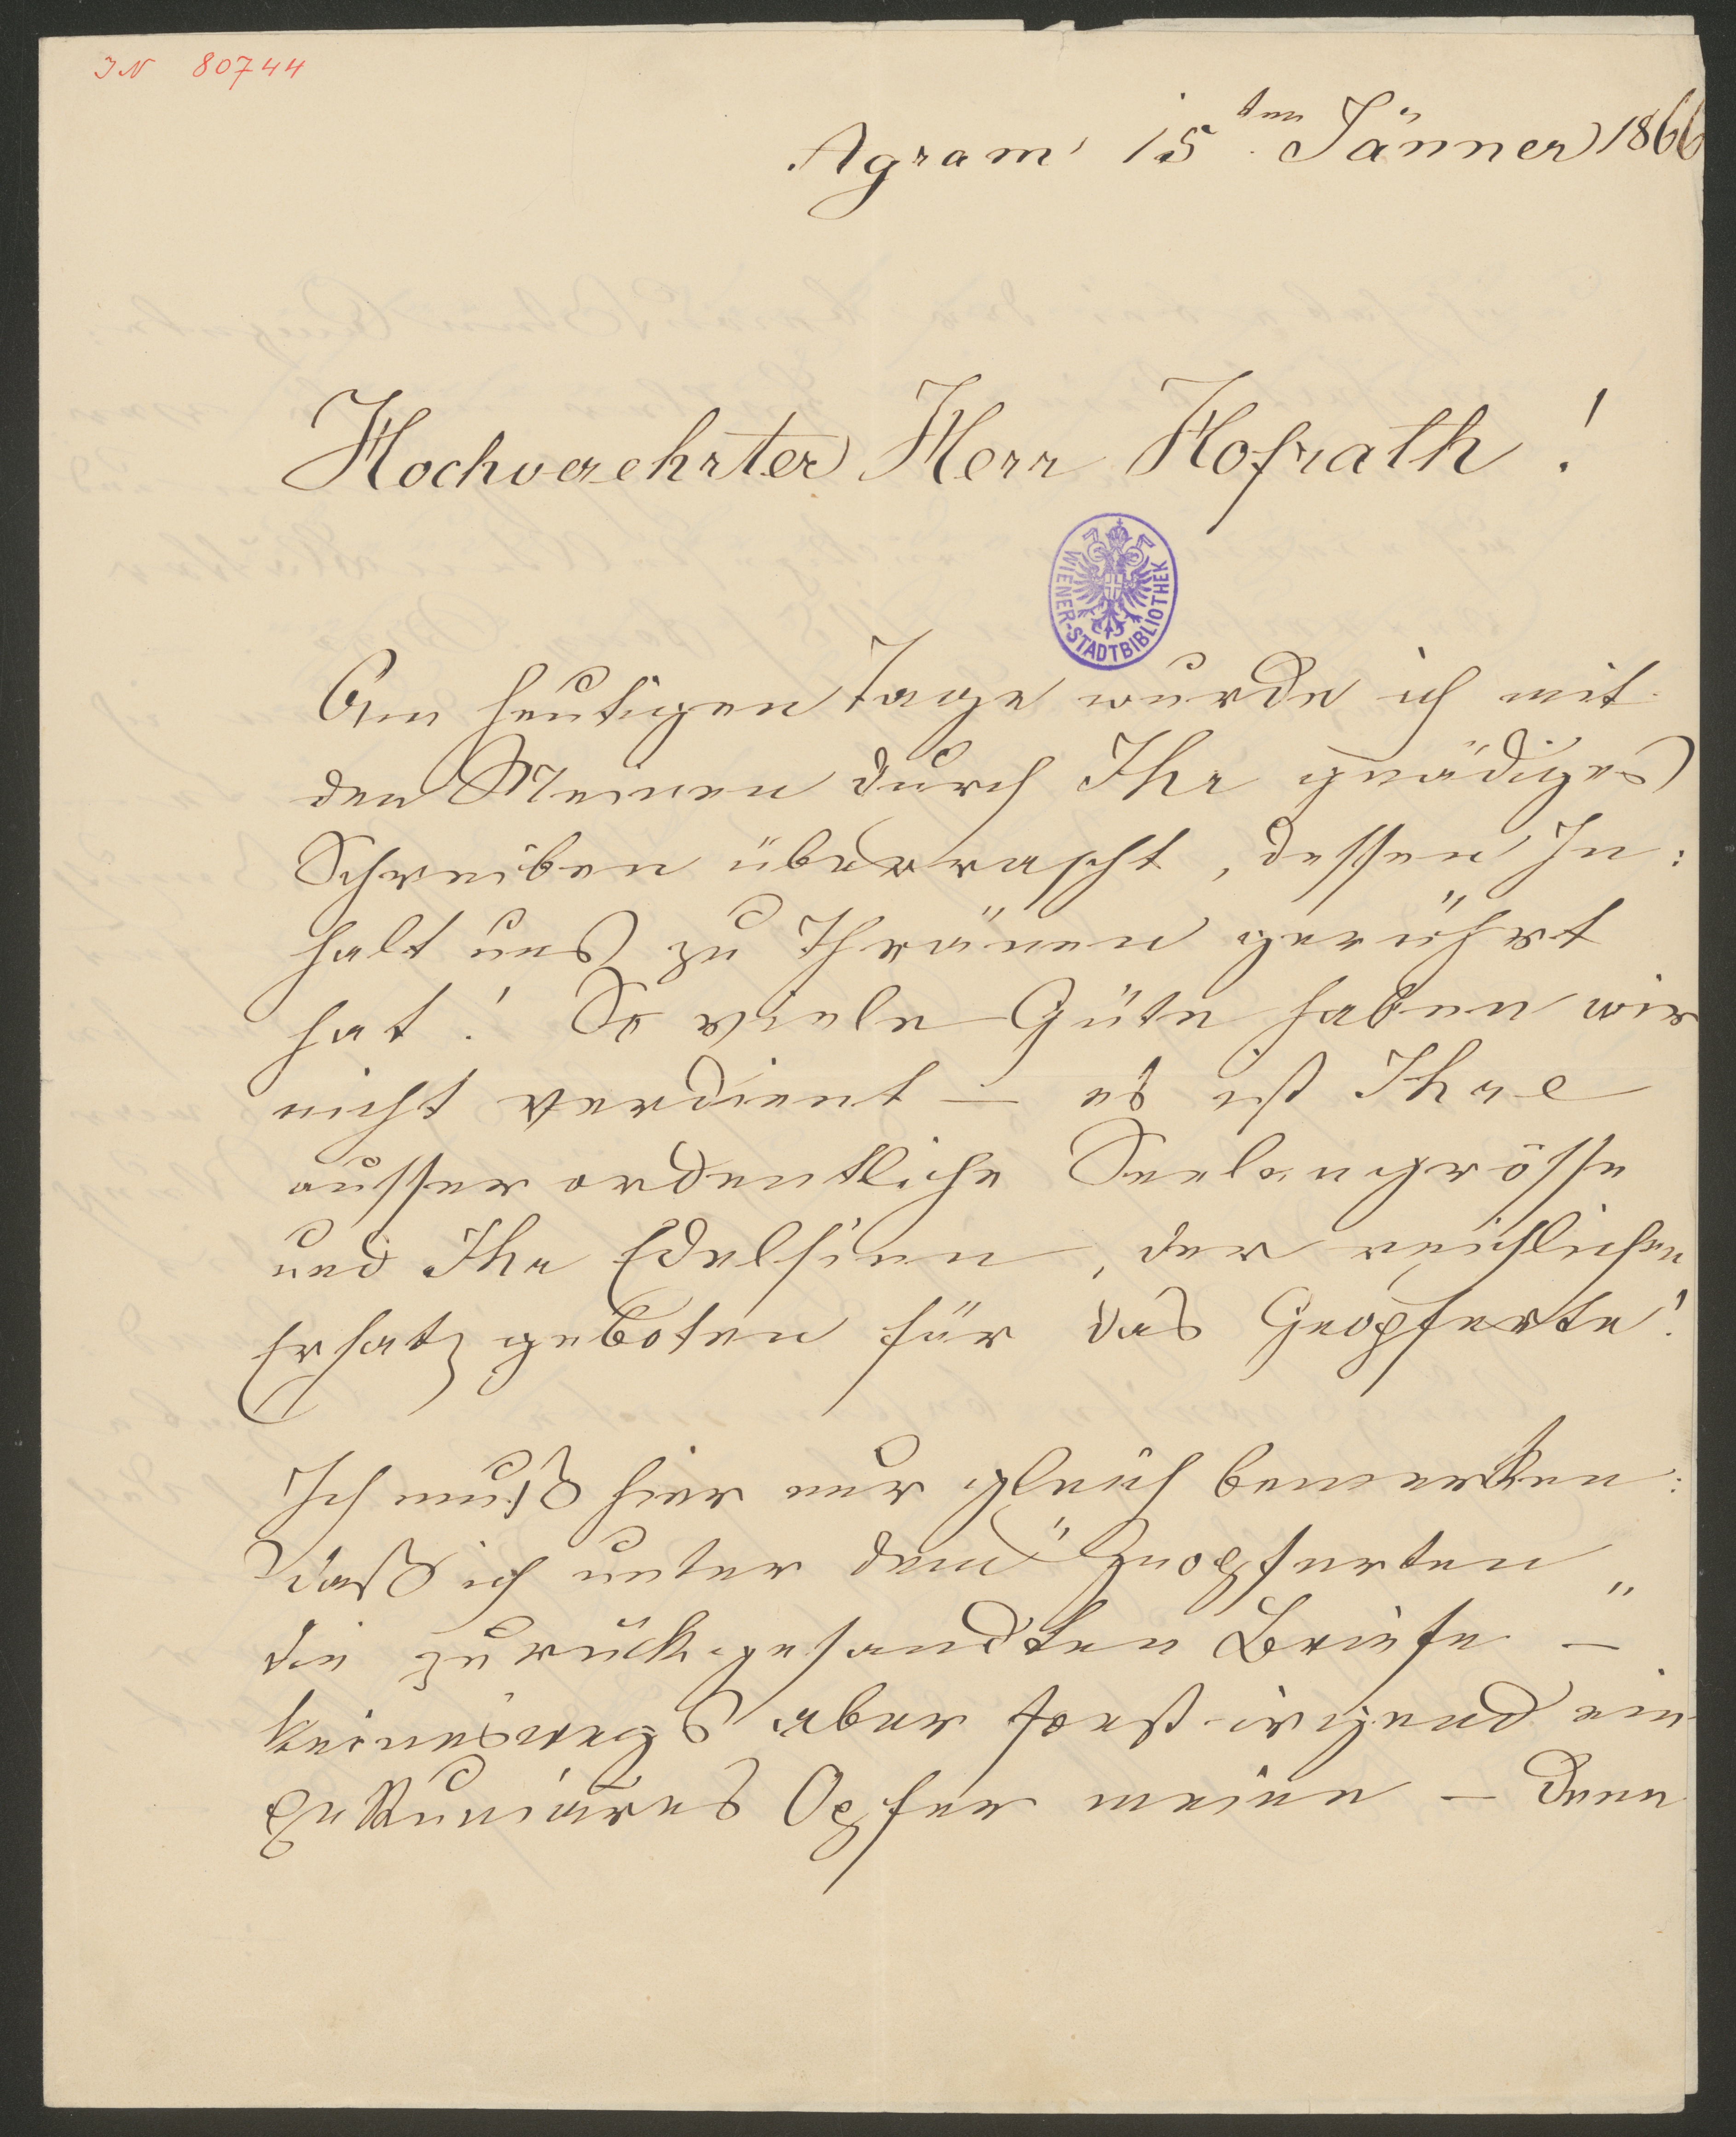 IN 80744
Agram 15ten Jänner 1866
Hochverehrter Herr Hofrath!
WIENER-STADTBIBLIOTHEK
Am heutigen Tage wurde ich mit
den Meinen durch Ihr gnädiges
Schreiben überrascht, dessen In:
halt uns zu Thränen gerührt
hat! So viele Güte haben wir
nicht verdient – es ist Ihre
ausserordentliche Seelengrösse
und Ihr Edelsinn, der reichlichen
Ersatz geboten für das Geopferte!
Ich muß hier nur gleich bemerken:
daß ich unter dem "Geopferten"
die zurückgesandten Briefe –
keineswegs aber sonst irgend ein
pekuniäres Opfer meine – denn